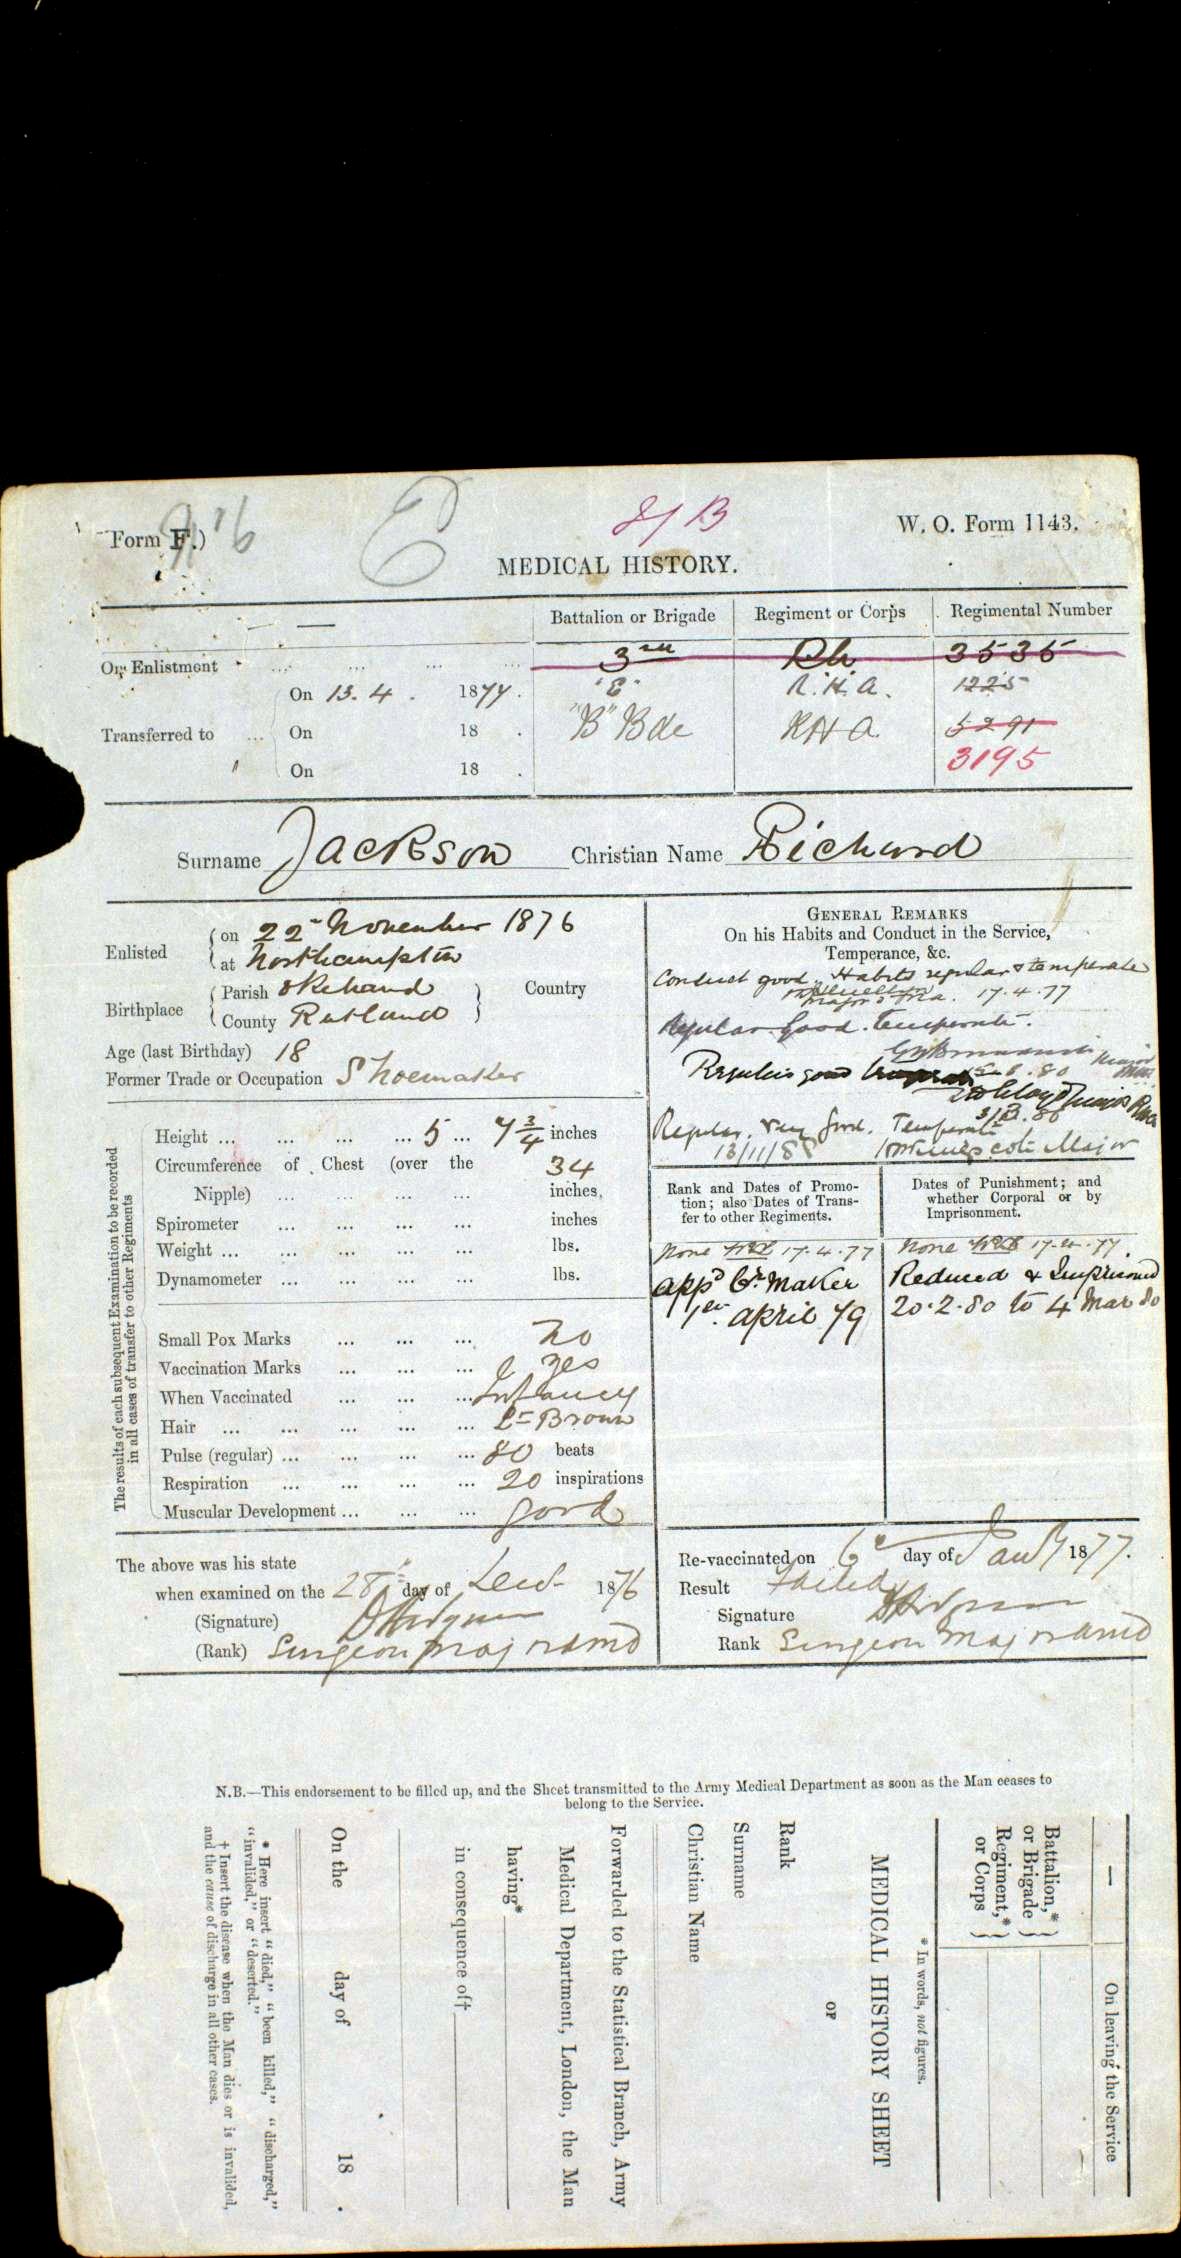 Form F.)
8/B
W. O. Form 1143.
MEDICAL HISTORY.
Battalion or Brigade Regiment or Corps Regimental Number
On Enlistment ... ... ... ... 3rd 3535
On 13.4. 1877. "E" R.H.A. 1225
Transferred to ... On 18 . "B" Bde RHA. 5291
On 18 . 3195
Surname Jackson Christian Name Richard
Enlisted { on 22nd November 1876
at Northampton
Birthplace { Parish Country
County Rutland }
Age (last Birthday) 18
Former Trade or Occupation Shoemaker
The results of each subsequent Examination to be recorded
in all cases of transfer to other Regiments
Height ... ... ... ... 5 ... 7 3/4 inches
Circumference of Chest (over the 34
Nipple) ... ... ... ... inches,
Spirometer ... ... ... ... inches
Weight ... ... ... ... ... lbs.
Dynamometer ... ... ... ... lbs.
Small Pox Marks ... ... ... no
Vaccination Marks ... ... ... yes
When Vaccinated ... ... ... Infancy
Hair ... ... ... ... ... Lt Brown
Pulse (regular) ... ... ... ... 80 beats
Respiration ... ... ... ... 20 inspirations
Muscular Development ... ... ... good
The above was his state
when examined on the 28th day of 1876
(Signature)
(Rank) Surgeon Maj
GENERAL REMARKS
On his Habits and Conduct in the Service,
Temperance, &c.
Conduct good. Habits regular & temperate
Major 17.4.77
Regular. Good. Temperate.
Major
Regular good 5.8.80
Regular. Very good. Temperate
13/11/88 Major
Rank and Dates of Promo-
tion; also Dates of Trans-
fer to other Regiments.
None 17.4.77
appd Cr. Maker
1st April 79
Dates of Punishment; and
whether Corporal or by
Imprisonment.
None 17.4.77.
Reduced & Imprisoned
20.2.80 to 4 Mar 80
Re-vaccinated on 6th day of Jany 1877.
Result Failed
Signature
Rank Surgeon Maj
N.B.—This endorsement to be filled up, and the Sheet transmitted to the Army Medical Department as soon as the Man ceases to
belong to the Service.
— On leaving the Service
Battalion,* }
or Brigade
Regiment,* }
or Corps
* In words, not figures.
MEDICAL HISTORY SHEET
OF
Rank
Surname
Christian Name
Forwarded to the Statistical Branch, Army
Medical Department, London, the Man
having*
in consequence of†
On the day of 18 .
* Here insert “died,” “been killed,” “discharged,”
“invalided,” or “deserted.”
† Insert the disease when the Man dies or is invalided,
and the cause of discharge in all other cases.